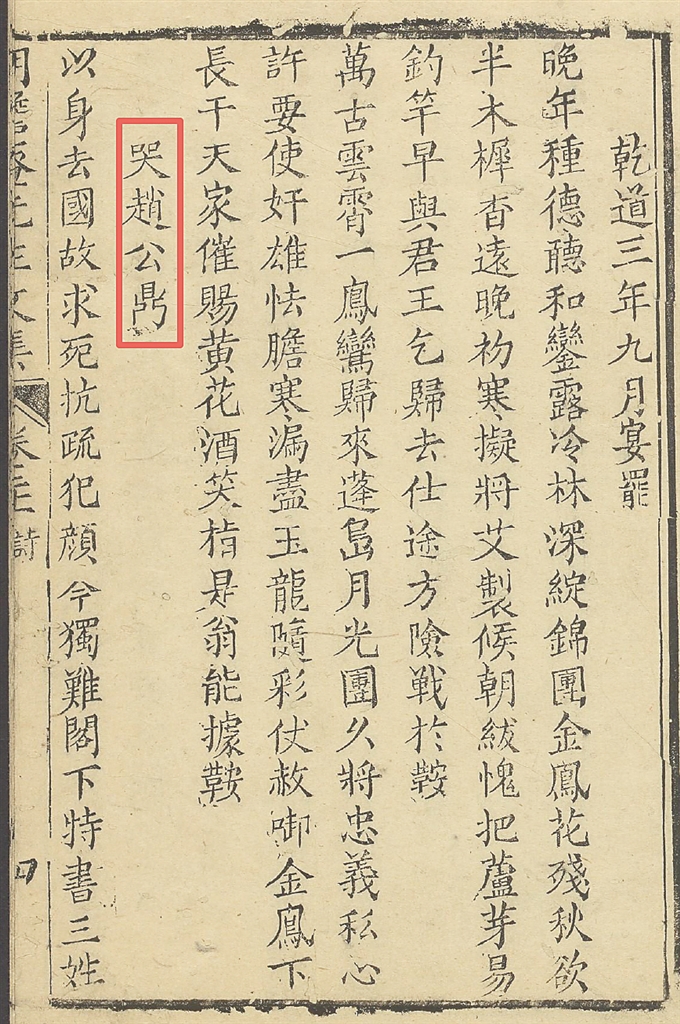 乾道三年九月宴罷
晚年種德聽和鑾露冷林深綻錦團金鳳花殘秋欲
半木樨香遠晚初寒擬將艾製候朝紱愧把蘆芽易
釣竿早與君王乞歸去仕途方險戰於鞍
萬古雲霄一鳳鸞歸來蓬島月光團久將忠義私心
許要使奸雄怯膽寒漏盡玉龍隨彩仗赦啣金鳳下
長干天家催賜黃花酒笑指是翁能據鞍
哭趙公鼎
以身去國故求死抗疏犯顏今獨難閣下特書三姓
胡澹菴先生文集
卷三 詩
四